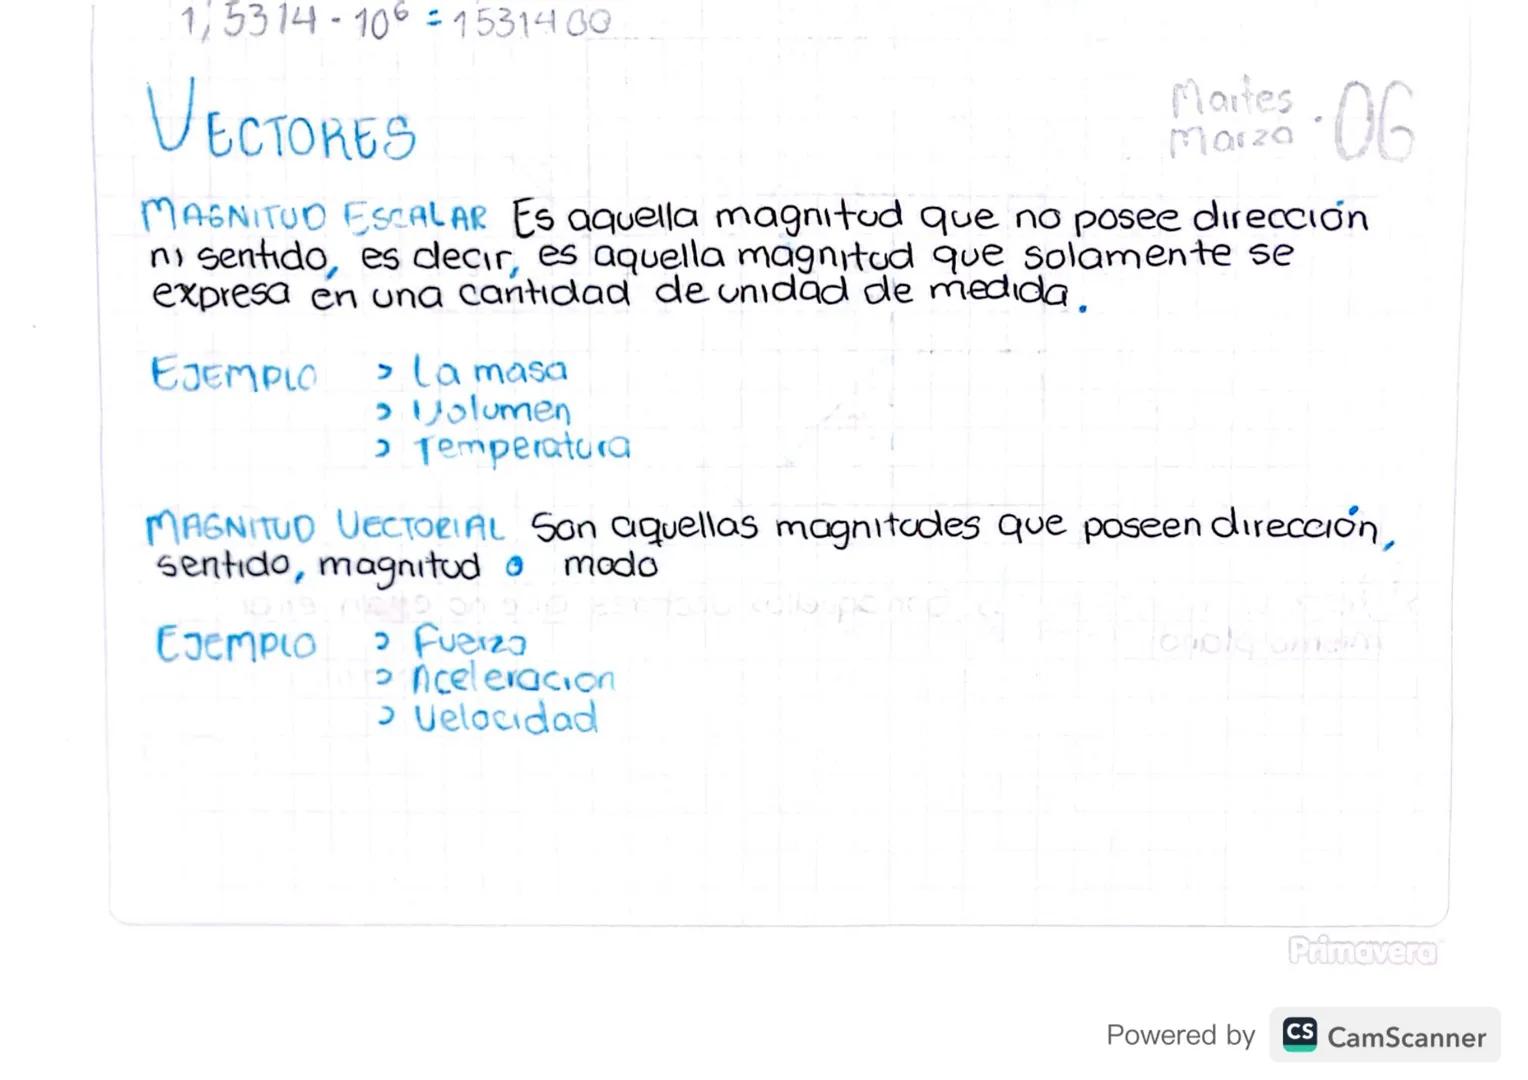 1,5314 - 10⁶ = 1531400
VECTORES
Martes
Marzo · 06
MAGNITUD ESCALAR Es aquella magnitud que no posee dirección
ni sentido, es decir, es aquella magnitud que solamente se
expresa en una cantidad de unidad de medida.
EJEMPLO > La masa
> Volumen
> Temperatura
MAGNITUD VECTORIAL Son aquellas magnitudes que poseen dirección,
sentido, magnitud o modo
EJEMPLO > Fuerza
> Aceleracion
> Velocidad
Primavera
Powered by CS CamScanner